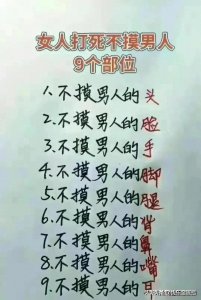 女人打死不摸男人
9个部位
1.不摸男人的头
2.不摸男人的脸
3.不摸男人的手
4.不摸男人的脚
5.不摸男人的腿
6.不摸男人的背
7.不摸男人的鼻
8.不摸男人的嘴
9.不摸男人的